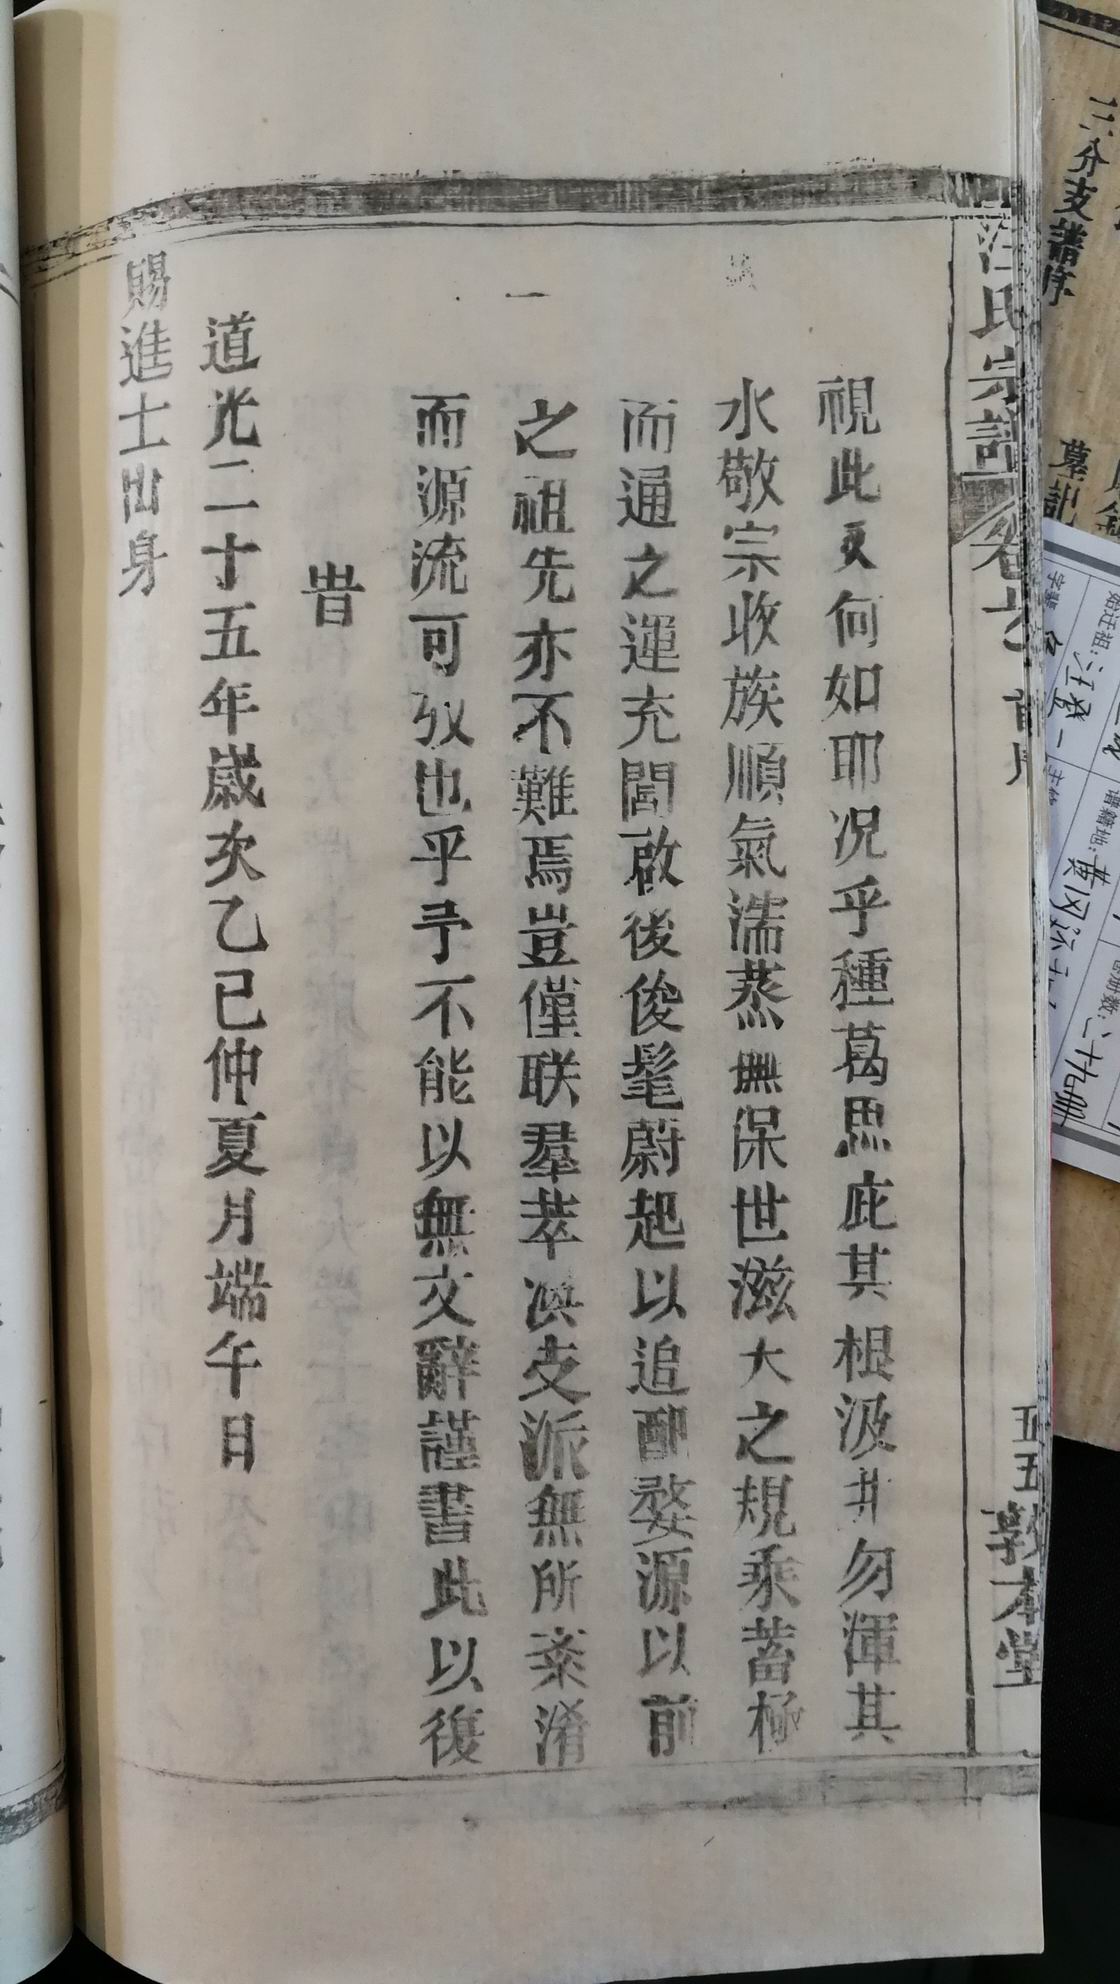 汪氏宗譜 卷之 首序 五五 敦本堂
視此又何如耶况乎種葛思庇其根汲井勿渾其
水敬宗收族順氣濡蒸無保世滋大之規乘蓄極
而通之運充閭啟後後俊髦蔚起以追配婺源以前
之祖先亦不難焉豈僅联羣萃渙支派無所紊淆
而源流可攷也乎予不能以無文辭謹書此以復
旹
道光二十五年歲次乙巳仲夏月端午日
賜進士出身
三分支譜序
墓記
始迁祖:汪登一
谱籍地:黄冈